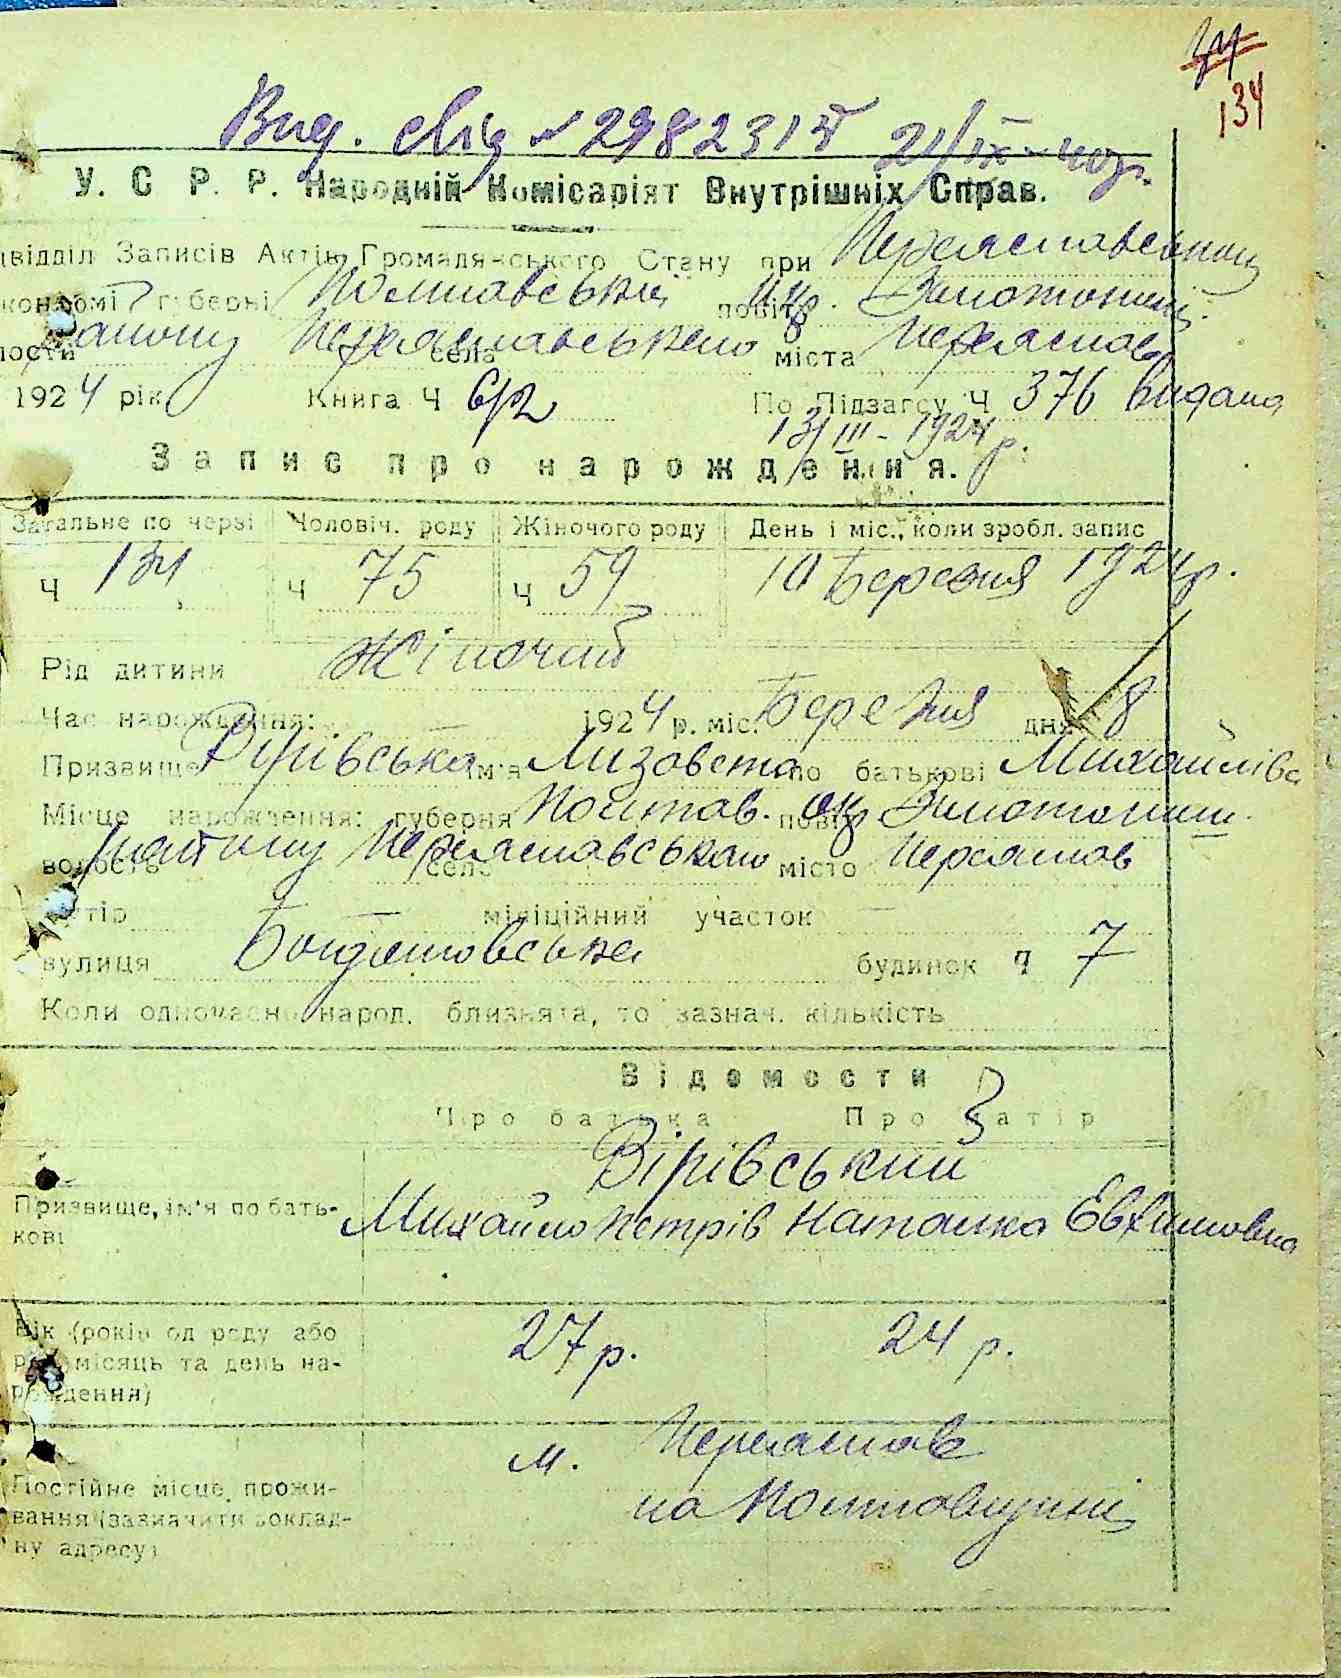 134
Вид. свід № 298231 21/IX-40р.
У. С Р. Р. Народній Комісаріят Внутрішніх Справ.
Підвідділ Записів Актів Громадянського Стану при Переяславському
конкомі губерні Полтавській повіту Окр. Золотоніській
лости Району Переяславського села міста Переяслав
1924 рік Книга Ч 6/2 По Підзагсу Ч 376 видана
13/III-1924р.
Запис про нарождення.
Загальне по черзі Чоловіч. роду Жіночого роду День і міс., коли зробл. запис
Ч 134 Ч 75 Ч 59 10 Березня 1924р.
Рід дитини Жіночий
Час нарождення: — 1924 р. міс. Березня дня 8
Призвище Вірівська ім'я Лизавета по батькові Михайлівна
Місце нарождення: губерня Полтав. повіт окр Золотоніш.
волость Району Переяславського село місто Переяслав
хутір — міліційний участок —
вулиця Богдановська будинок Ч 7
Коли одночасно народ. близнята, то зазнач. кількість
Відомости
Про батька Про матір
Вірівський
Призвище, ім'я по бать-
кові
Михайло Петрів Наталка Евхимовна
Вік (років од роду або
рік місяць та день на-
рождення)
27 р. 24 р.
Постійне місце прожи-
вання (зазначити доклад-
ну адресу)
м. Переяслав
на Полтавщині